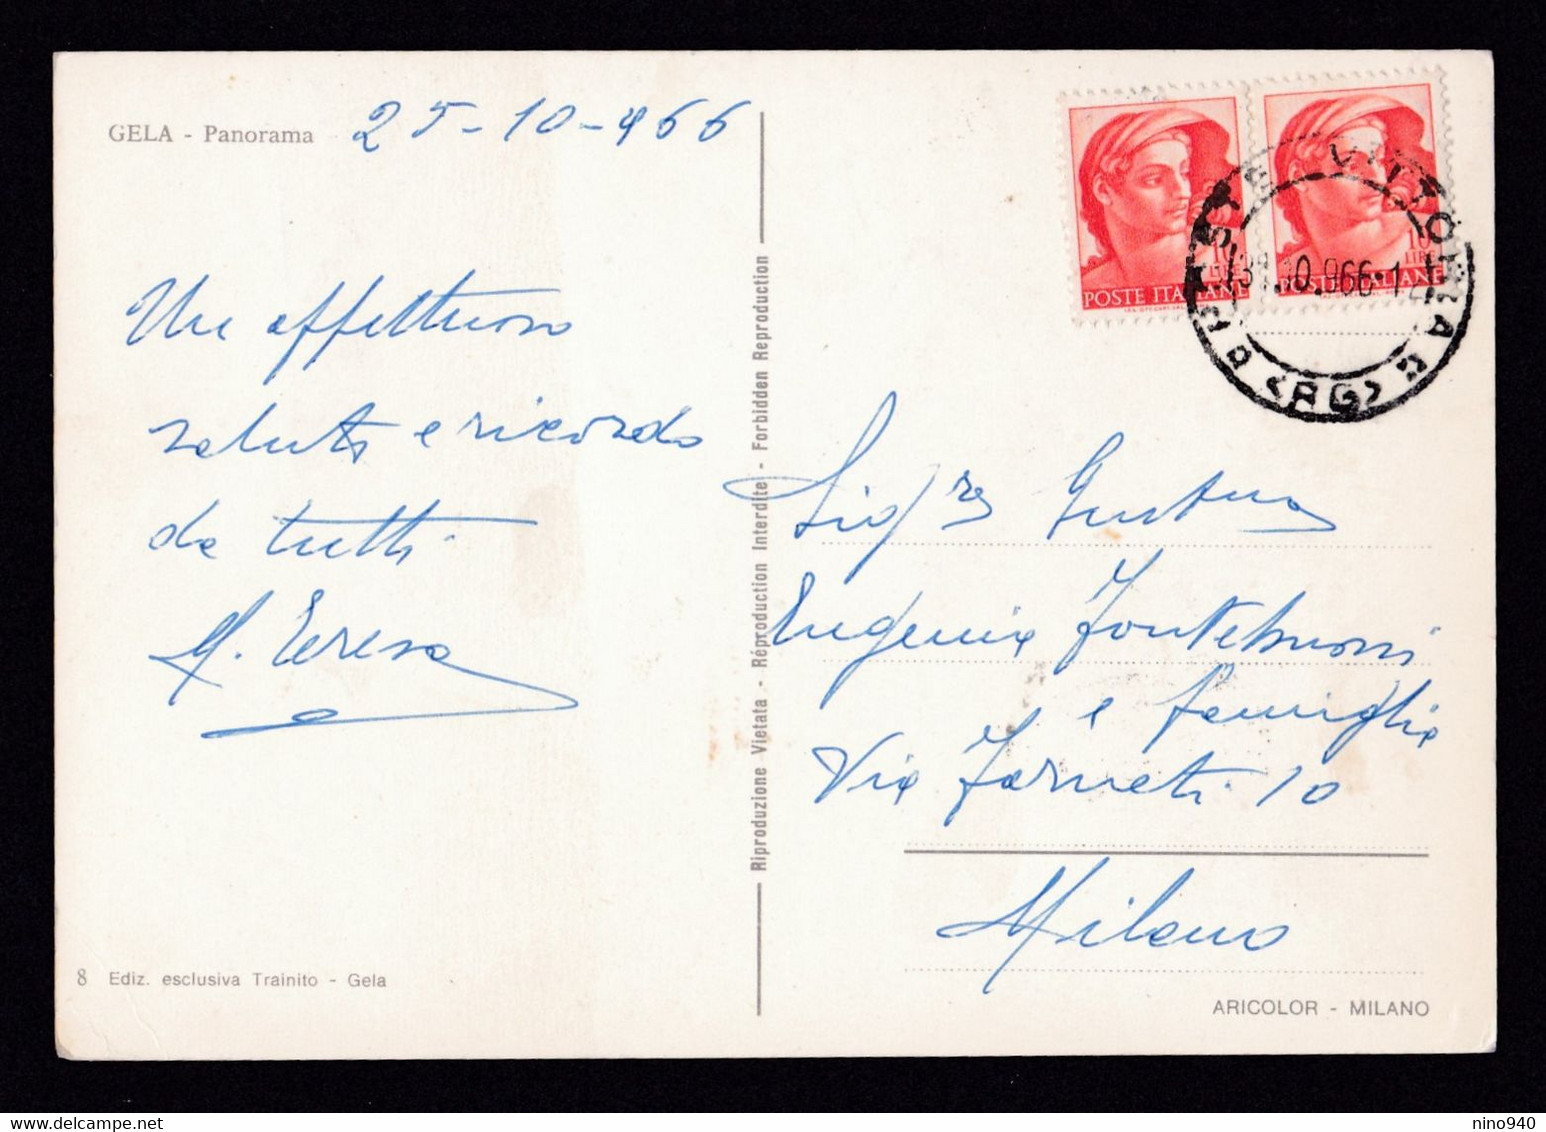 GELA - Panorama
25-10-966
Un affettuoso
saluto e ricordo
da tutti
M. Teresa
8 Ediz. esclusiva Trainito - Gela
Riproduzione Vietata - Réproduction Interdite - Forbidden Reproduction
10
LIRE
POSTE ITALIANE
10
LIRE
POSTE ITALIANE
VITTORIA
(RG)
.10.966
Sig.ra
Eugenia
e famiglia
Via 10
Milano
ARICOLOR - MILANO
nino940